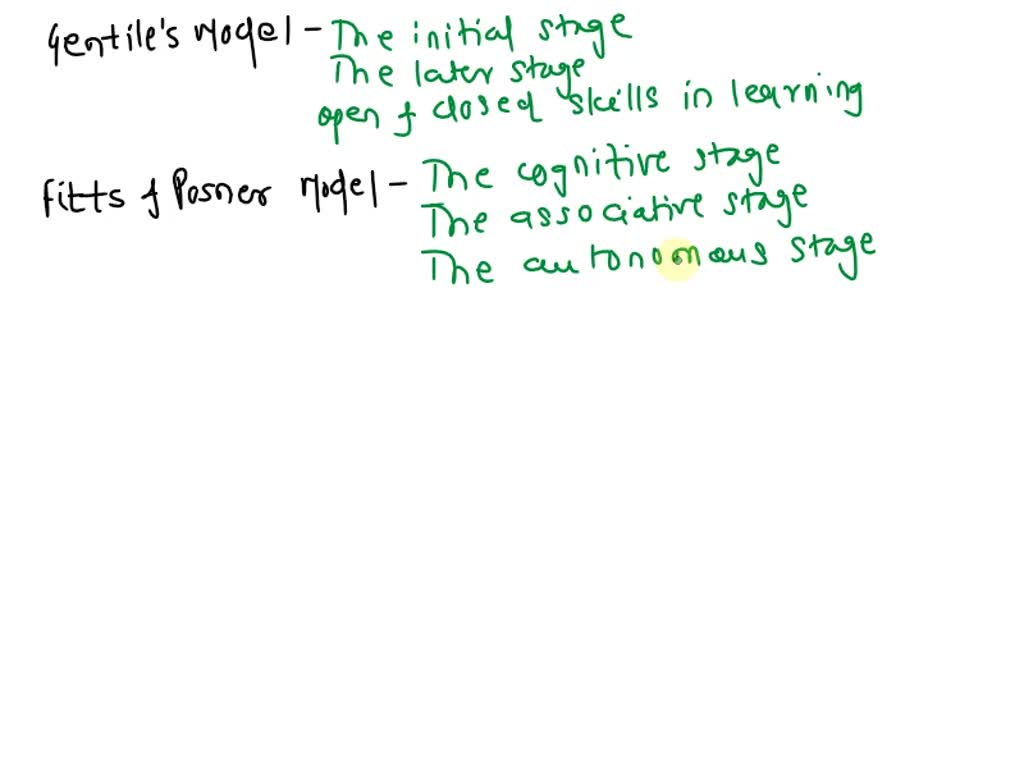 Gentile's Model - The initial stage
The later stage
open & closed skills in learning
Fitts & Posner Model - The cognitive stage
The associative stage
The autonomous stage